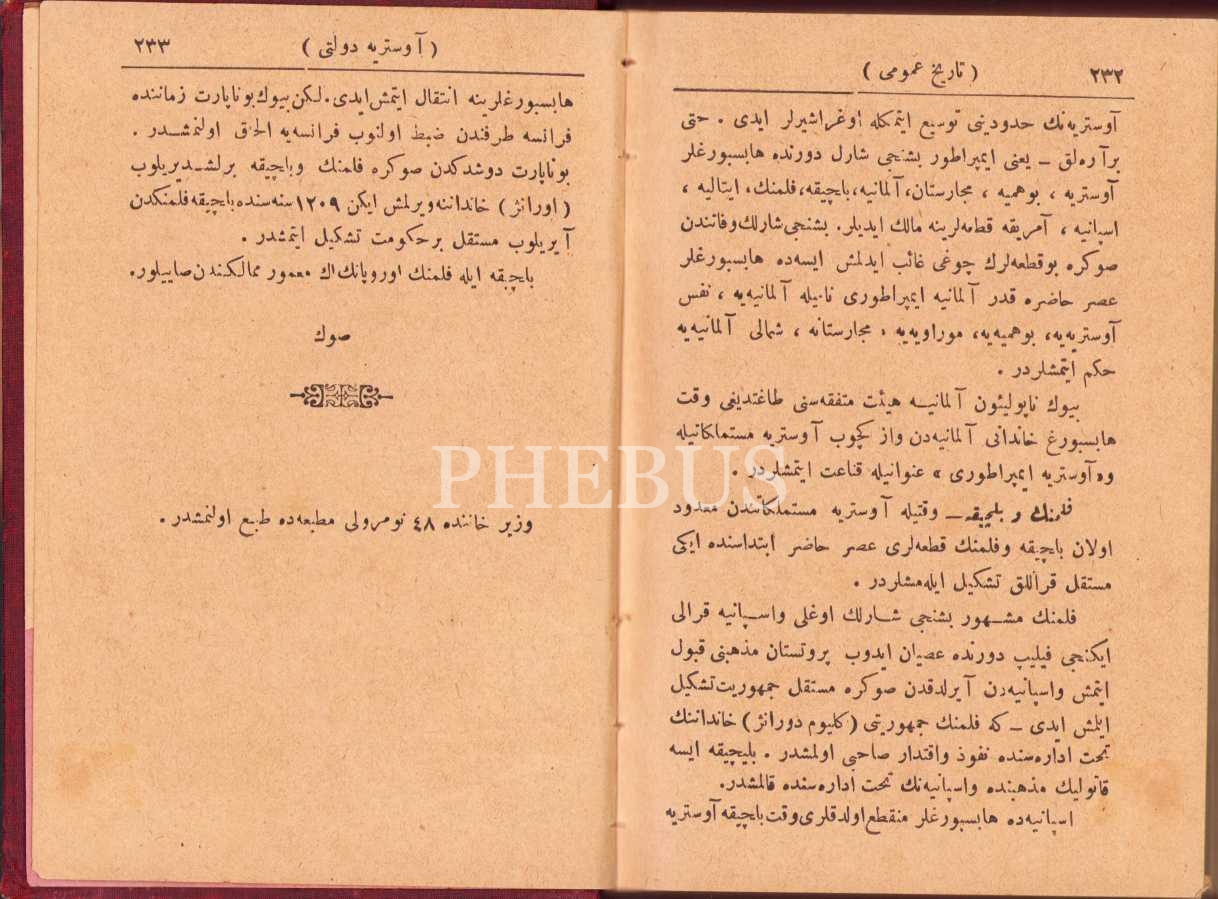 ٢٣٢ ( تاريخ عمومى )
آوستريه‌نك حدودينى توسيع ايتمكله اوغراشيرلر ايدى . حتى
بر آره‌لق ــ يعنى ايمپراطور بشنجى شارل دورنده هابسبورغلر
آوستريه ، بوهميه ، مجارستان، آلمانيه، بلچيقه، فلمنك، ايتاليه ،
اسپانيه ، آمريقه قطعه‌لرينه مالك ايديلر. بشنجى شارلك وفاتندن
صوكره بو قطعه‌لرك چوغى غائب ايدلمش ايسه‌ده هابسبورغلر
عصر حاضره قدر آلمانيه ايمپراطورى ناميله آلمانيه‌يه ، نفس
آوستريه‌يه، بوهميه‌يه، موراويه‌يه ، مجارستانه ، شمالى آلمانيه‌يه
حكم ايتمشلردر .
بيوك ناپوليئون آلمانيه هيئت متفقه‌سنى طاغتديغى وقت
هابسبورغ خاندانى آلمانيه‌دن واز كچوب آوستريه مستملكاتيله
و« آوستريه ايمپراطورى » عنوانيله قناعت ايتمشلردر .
فلمنك و بلچيقه ــ وقتيله آوستريه مستملكاتندن معدود
اولان بلچيقه وفلمنك قطعه‌لرى عصر حاضر ابتداسنده ايكى
مستقل قراللق تشكيل ايله‌مشلردر .
فلمنك مشهور بشنجى شارلك اوغلى واسپانيه قرالى
ايكنجى فيليپ دورنده عصيان ايدوب پروتستان مذهبنى قبول
ايتمش واسپانيه‌دن آيرلدقدن صوكره مستقل جمهوريت تشكيل
ايلمش ايدى ــ كه فلمنك جمهوريتى (كليوم دورانژ) خانداننك
تحت اداره‌سنده نفوذ واقتدار صاحبى اولمشدر . بليچيقه ايسه
قاتوليك مذهبنده واسپانيه‌نك تحت اداره‌سنده قالمشدر.
اسپانيه‌ده هابسبورغلر منقطع اولدقلرى وقت بلچيقه آوستريه
( آوستريه دولتى ) ٢٣٣
هابسبورغلرينه انتقال ايتمش ايدى. لكن بيوك بوناپارت زماننده
فرانسه طرفندن ضبط اولنوب فرانسه‌يه الحاق اولنمشدر .
بوناپارت دوشدكدن صوكره فلمنك وبلچيقه برلشديريلوب
( اورانژ ) خانداننه ويرلمش ايكن ١٢٠٩ سنه‌سنده بلچيقه فلمنكدن
آيريلوب مستقل بر حكومت تشكيل ايتمشدر .
بلچيقه ايله فلمنك اوروپانك اك معمور ممالكندن صاييلور.
صوك
وزير خاننده ٤٨ نومرولى مطبعه‌ده طبع اولنمشدر .
PHEBUS